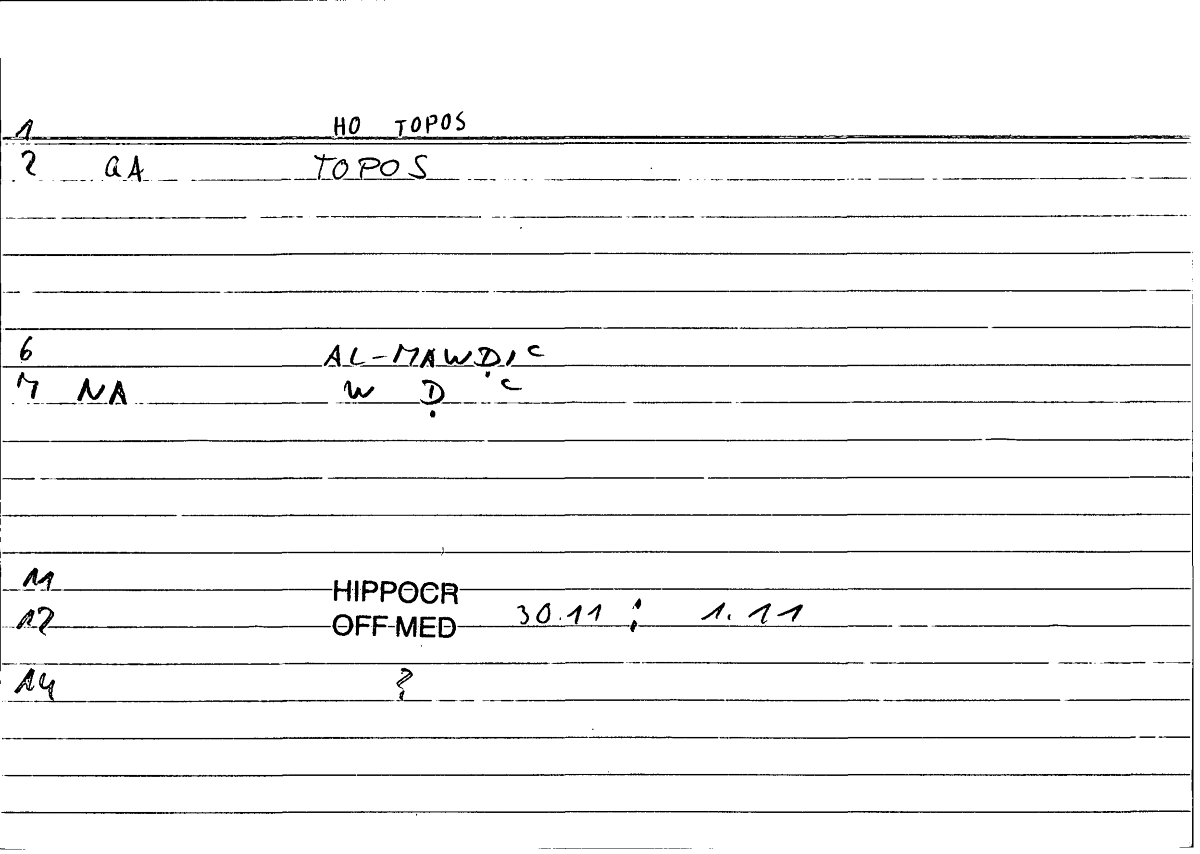 1 HO TOPOS
2 QA TOPOS
6 AL-MAWḌIʿ
7 NA W Ḍ ʿ
11 HIPPOCR
12 OFF-MED 30.11 : 1.11
14 ?